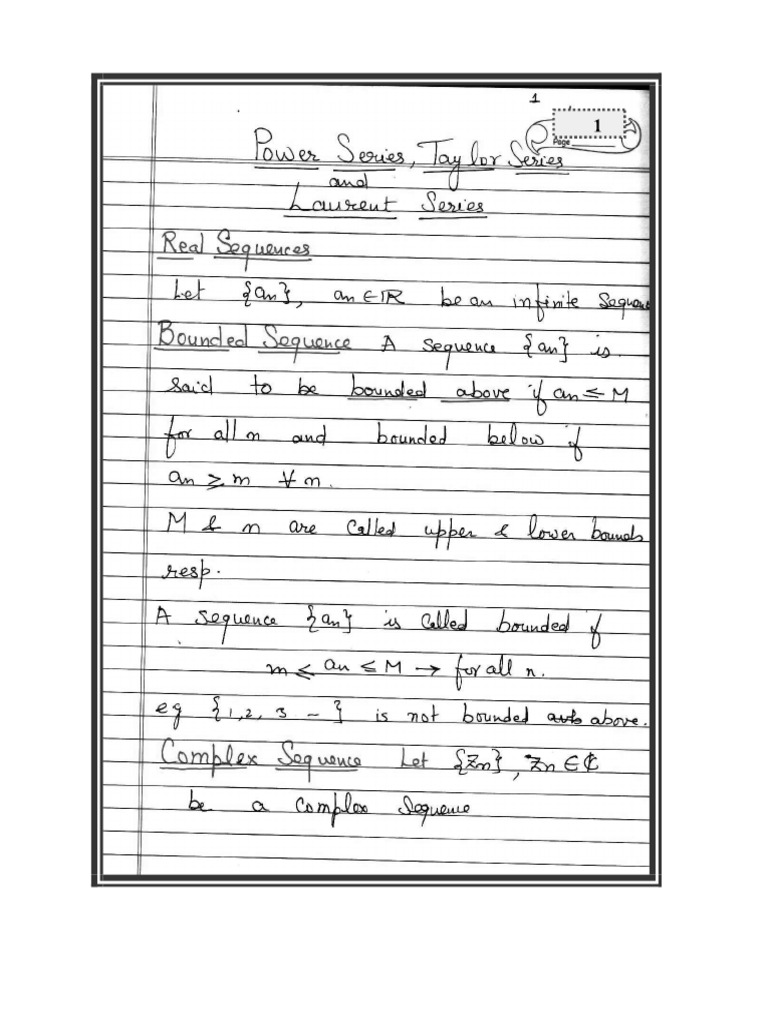 1
1
Page
Power Series, Taylor Series
and
Laurent Series
Real Sequences
Let {an}, an ∈ ℝ be an infinite Sequenc
Bounded Sequence A sequence {an} is.
said to be bounded above if an ≤ M
for all n and bounded below if
an ≥ m ∀ n.
M & n are called upper & lower bounds
resp.
A sequence {an} is called bounded if
m ≤ an ≤ M → for all n.
eg {1, 2, 3 - } is not bounded above.
Complex Sequence Let {Zn}, Zn ∈ ₵
be a complex sequence